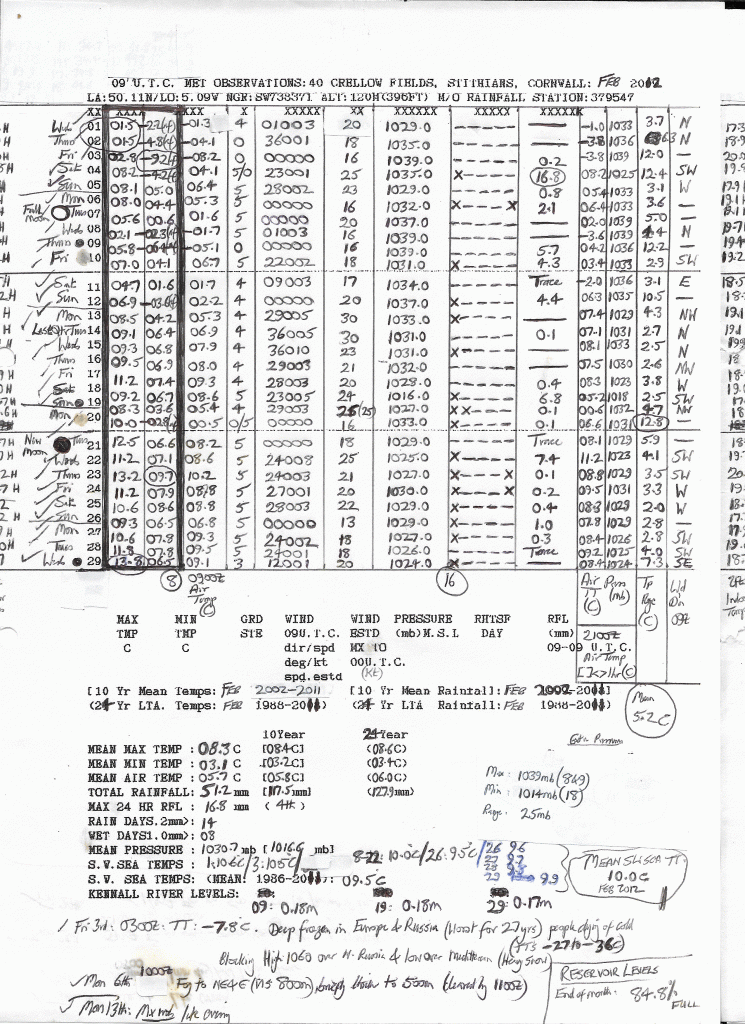 09 U.T.C. MET OBSERVATIONS:40 CRELLOW FIELDS, STITHIANS, CORNWALL: FEB 2012
LA:50.11N/LO:5.09W NGR:SW738371 ALT:120M(396FT) M/O RAINFALL STATION:379547
XX XXXX XXXX XXX X XXXXX XX XXXXXX XXXXX XXXXXX
Wed 01 01.5 -2.2(4) -01.3 4 01003 20 1029.0 -1.0 1033 3.7 N
Thu 02 01.5 -4.8(4) -04.1 0 36001 18 1035.0 -3.8 1036 6.3 N
Fri 03 02.8 -9.2(4) -08.2 0 00000 16 1039.0 0.2 -3.8 1039 12.0 —
Sat 04 08.2 -4.2(4) 04.1 5/0 23001 25 1035.0 X---- 16.8 08.2 1025 12.4 SW
Sun 05 08.1 05.0 06.4 5 28002 23 1029.0 ----- 0.8 05.4 1033 3.1 W
Mon 06 08.0 04.4 05.3 5 00000 16 1032.0 X---X 2.1 06.4 1033 3.6 —
Full Moon Tues 07 05.6 00.6 01.6 5 00000 20 1037.0 ----- -02.0 1039 5.0 —
Wed 08 02.1 -02.3(4) -01.7 5 01003 16 1039.0 ----- -3.6 1039 4.4 N
Thu 09 05.8 -06.4(4) -05.1 0 00000 16 1039.0 ----- 5.7 04.2 1036 12.2 —
Fri 10 07.0 04.1 06.7 5 22002 18 1031.0 X---- 4.3 03.4 1033 2.9 SW
Sat 11 04.7 01.6 01.7 4 09003 17 1034.0 ----- Trace -2.0 1036 3.1 E
Sun 12 06.9 -03.6(4) 02.2 4 00000 20 1037.0 ----- 4.4 06.3 1035 10.5 —
Mon 13 08.5 04.2 05.3 4 29005 30 1033.0 X---- 07.4 1029 4.3 NW
Last Qtr Tues 14 09.1 06.4 06.9 4 36005 30 1031.0 ----- 0.1 07.1 1031 2.7 N
Wed 15 09.3 06.8 07.9 4 36010 23 1031.0 X---- 08.1 1033 2.5 N
Thu 16 09.5 06.9 08.0 4 29003 21 1032.0 ----- 07.5 1030 2.6 NW
Fri 17 11.2 07.4 09.3 4 28003 20 1028.0 ----- 0.4 08.3 1023 3.8 W
Sat 18 09.2 06.7 08.6 5 23005 24 1016.0 X---- 6.8 05.2 1018 2.5 SW
Sun 19 08.3 03.6 05.4 4 29003 25(25) 1027.0 XX--- 0.1 00.6 1032 4.7 NW
Mon 20 10.0 00.5 0/5 00000 16 1033.0 X---- 0.1 06.6 1031 12.8 —
New Moon Tues 21 12.5 06.6 08.2 5 00000 18 1029.0 ----- Trace 08.1 1029 5.9 —
Wed 22 11.2 07.1 08.6 5 24008 25 1025.0 X---- 7.4 11.2 1023 4.1 SW
Thu 23 13.2 09.7 10.2 5 24003 21 1027.0 X---X 0.1 08.8 1029 3.5 SW
Fri 24 11.2 07.9 08.8 5 27001 20 1030.0 X---X 0.2 09.5 1031 3.3 W
Sat 25 10.6 08.6 08.8 5 28003 22 1029.0 ----- 0.4 08.3 1029 2.0 W
Sun 26 09.3 06.5 06.8 5 00000 13 1029.0 ----- 1.0 07.8 1029 2.8 —
Mon 27 10.6 07.8 09.3 5 24002 18 1028.0 X---- 0.3 08.4 1026 2.8 SW
Tues 28 11.8 07.8 09.5 5 24001 18 1026.0 ----- Trace 09.2 1025 4.0 SW
Wed 29 13.8 06.5 09.1 3 12001 20 1024.0 X---- 08.4 1024 7.3 SE
8 0900Z Air Temp (C) 16
Air TT (C) Press (mb) Tp Rge (C) Wd Dir 09Z
MAX MIN GRD WIND WIND PRESSURE RHTSF RFL
TMP TMP STE 09U.T.C. ESTD (mb)M.S.L DAY (mm)
C C dir/spd MX TO 09-09 U.T.C.
deg/kt 00U.T.C.
spd.estd (Kt)
2100Z Air Temp []<>1hr(C)
[10 Yr Mean Temps: FEB 2002-2011 [10 Yr Mean Rainfall: FEB 2002-2011]
(24 Yr LTA. Temps: FEB 1988-2011) (24 Yr LTA. Rainfall: FEB 1988-2011)
Mean 5.2C
10Year 24Year
MEAN MAX TEMP : 08.3 C [08.4C] (08.6C)
MEAN MIN TEMP : 03.1 C [03.2C] (03.4C)
MEAN AIR TEMP : 05.7 C [05.8C] (06.0C)
TOTAL RAINFALL: 51.2 mm [117.5mm] (127.9mm)
MAX 24 HR RFL : 16.8 mm (4th)
RAIN DAYS.2mm>: 14
WET DAYS1.0mm>: 08
Max: 1039mb (8&9)
Min: 1014mb (18)
Range: 25mb
MEAN PRESSURE : 1030.7 mb [1016.6 mb]
S.W.SEA TEMPS : 1:10.6C/3:10.5C/ 8-22: 10.0C/26:9.5C
S.W. SEA TEMPS: (MEAN: 1986-2011): 09.5C
26 9.6
27 9.7
29 9.9
MEAN SW SEA TT.
10.0C
FEB 2012
KENNALL RIVER LEVELS:
09: 0.18m 19: 0.18m 29: 0.17m
/ Fri 3rd: 0300Z: TT: -7.8C. Deep frozen in Europe & Russia (Worst for 27yrs) people dying of cold
(TTs -27 to -36C)
Blocking High 1060 over N. Russia & low over Mediterr (Heavy Snow)
✓ Mon 6th 1000Z Fog to NE4E (VIS 800m), briefly thicker to 500m (cleared by 1100Z)
✓ Mon 13th:
RESERVOIR LEVELS
End of month: 84.8% FULL